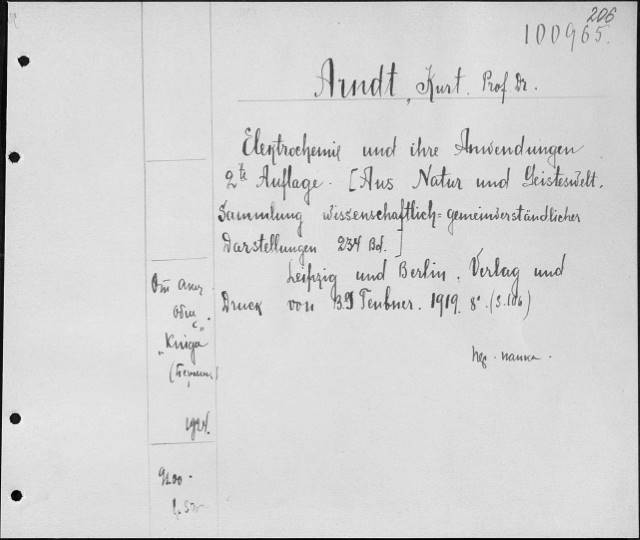 206
100965.
Arndt, Kurt. Prof. Dr.
Elektrochemie und ihre Anwendungen
2te Auflage. [Aus Natur und Geisteswelt.
Sammlung wissenschaftlich=gemeinverständlicher
Darstellungen 234 Bd.]
Leipzig und Berlin. Verlag und
Druck von B.G Teubner. 1919. 8°. (S.106)
От Акц.
Общ.
"Kniga"
1924.